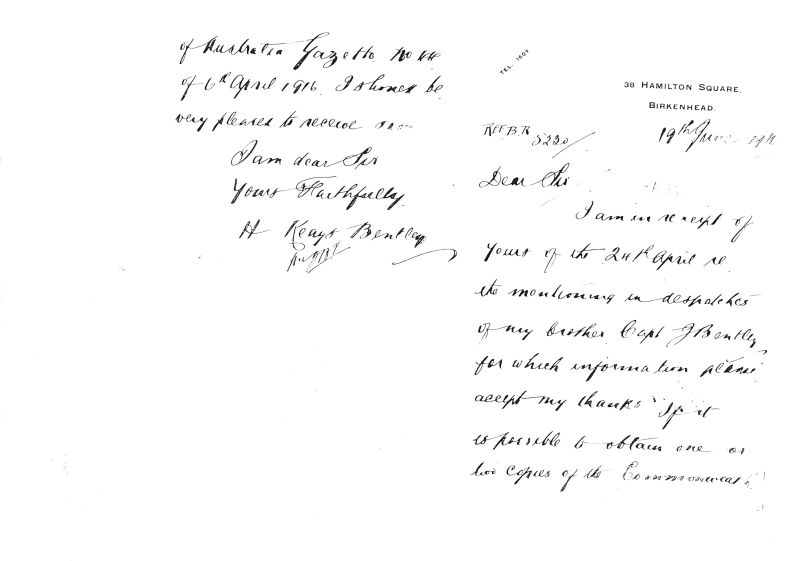 TEL: 1609
38 HAMILTON SQUARE,
BIRKENHEAD.
REF B.R 5220/
19th June 1916
Dear Sir
I am in receipt of
yours of the 24th April re
the mentioning in despatches
of my brother Capt J Bentley,
for which information please
accept my thanks If it
is possible to obtain one or
two copies of the Commonwealth
of Australia Gazette No 44
of 6th April 1916. I should be
very pleased to receive
I am dear Sir
Yours Faithfully
H Keays Bentley